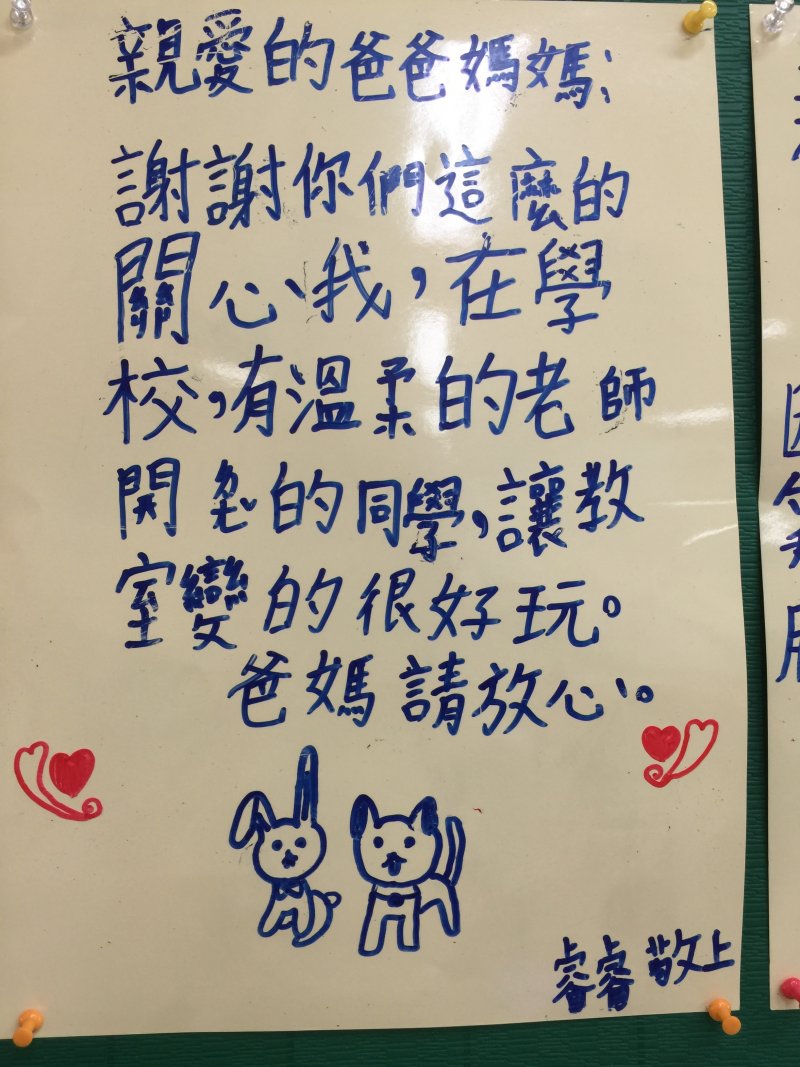 親愛的爸爸媽媽：
謝謝你們這麼的
關心我，在學
校，有溫柔的老師
開 的同學，讓教
室變的很好玩。
爸媽請放心。
睿睿敬上